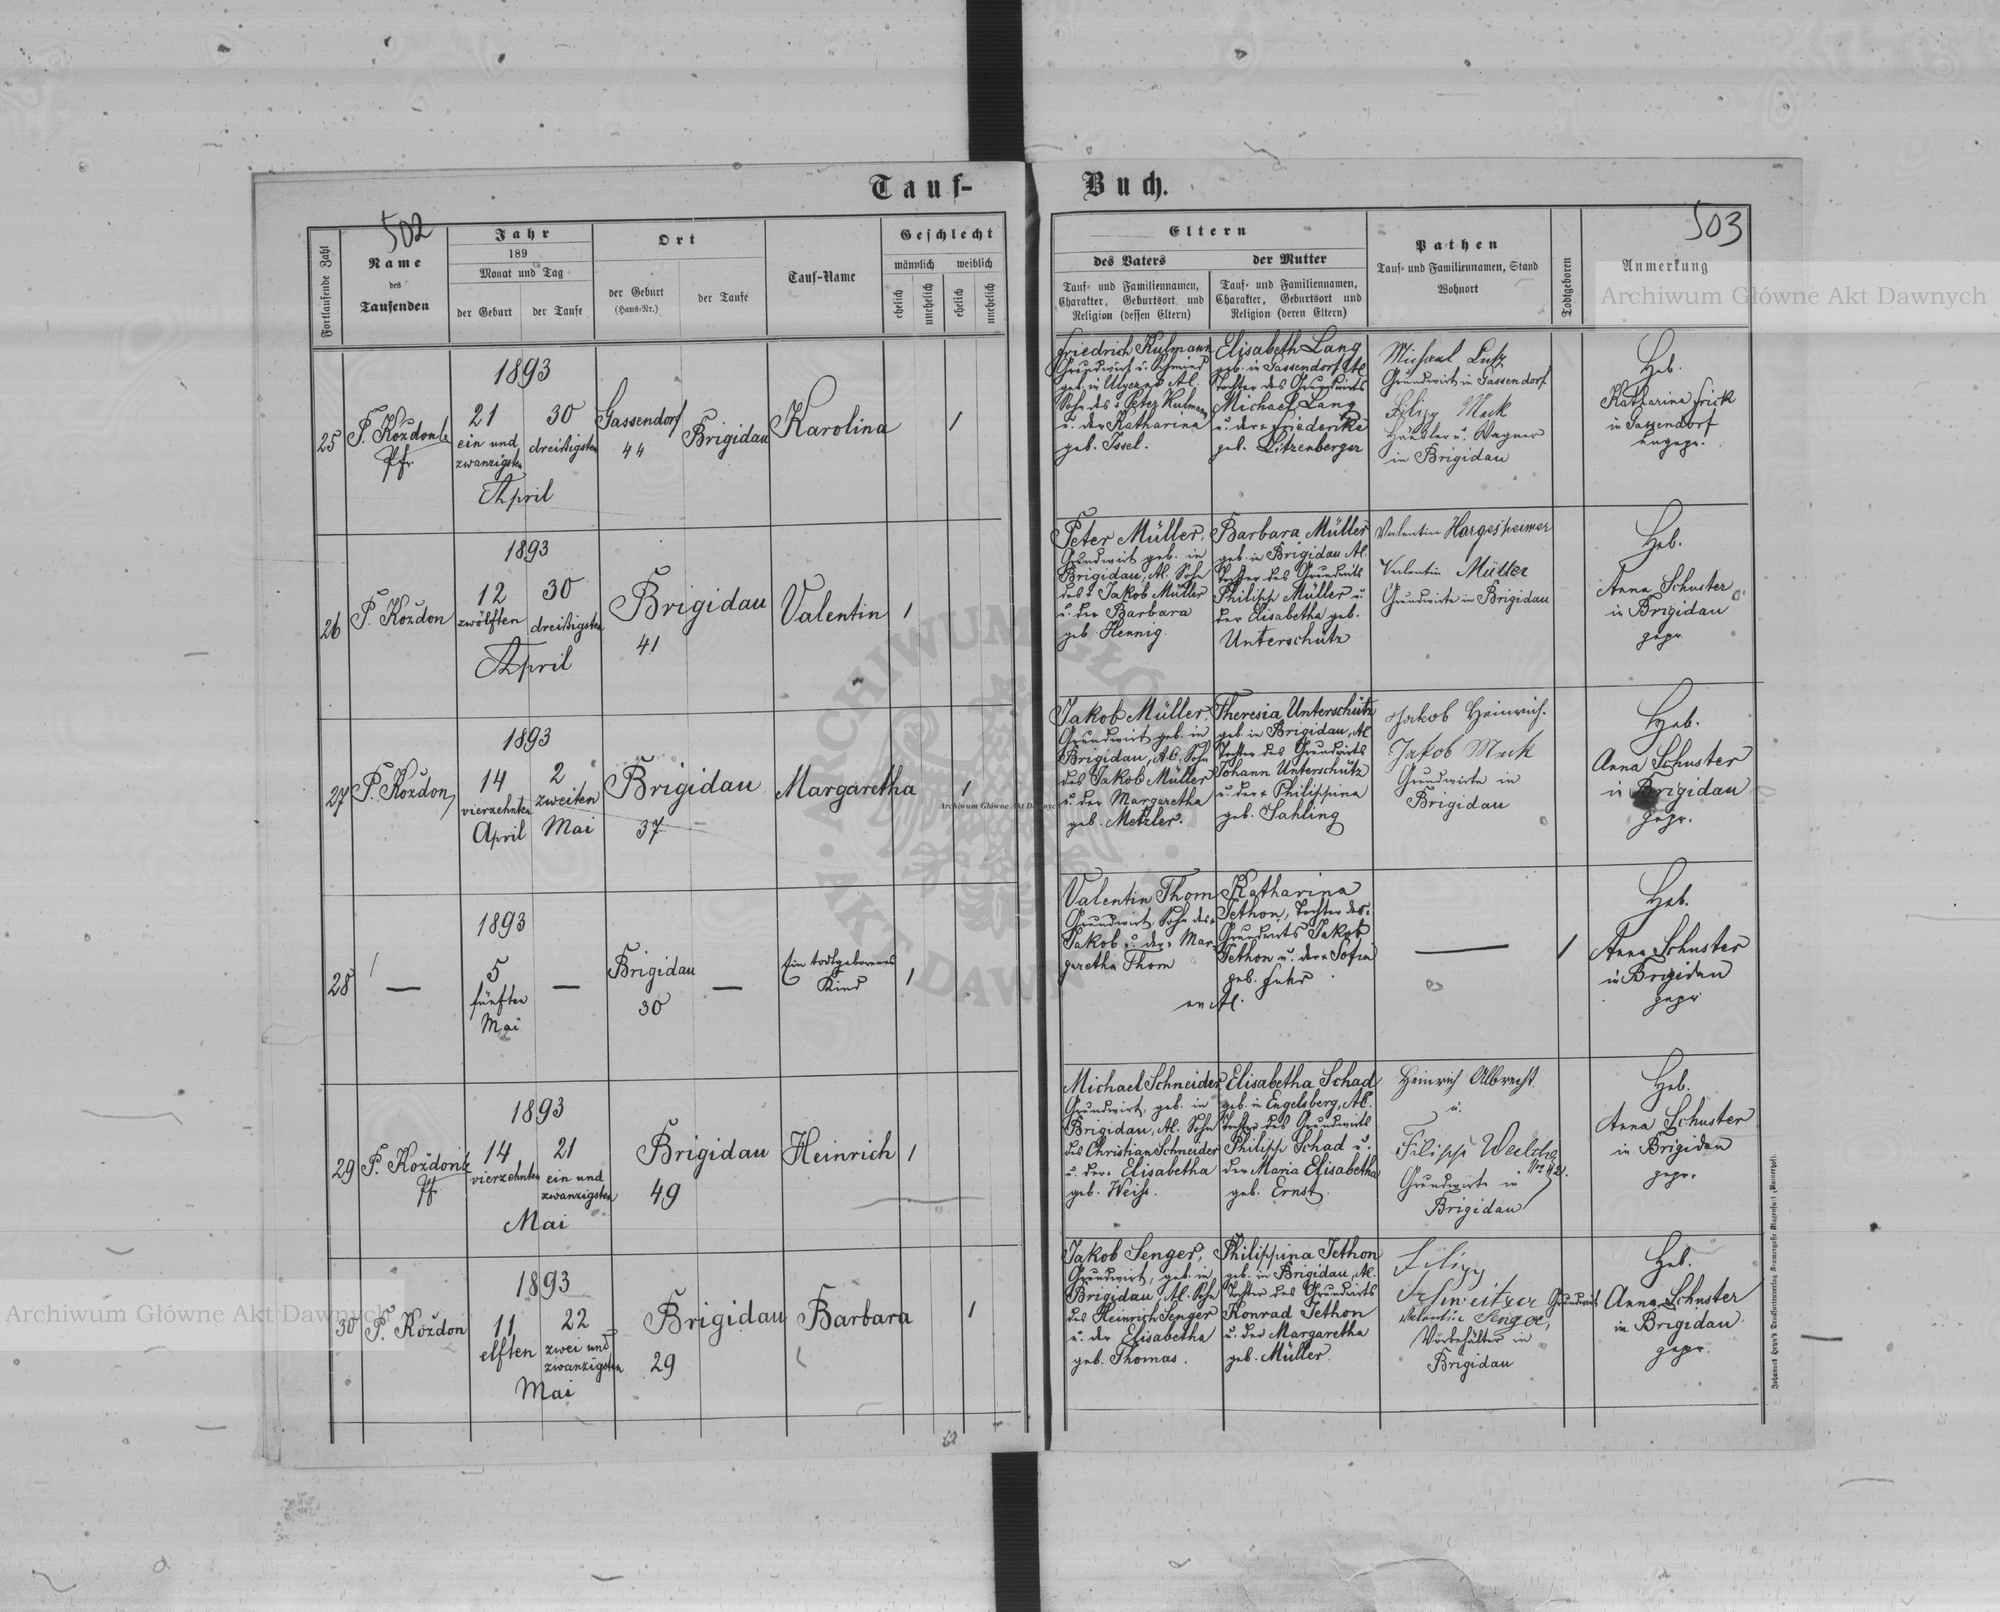 Tauf-
Buch.
502
503
Fortlaufende Zahl
Name
des
Taufenden
Jahr
189
Monat und Tag
der Geburt
der Taufe
Ort
der Geburt
(Haus-Nr.)
der Taufe
Tauf-Name
Geschlecht
männlich
weiblich
ehelich
unehelich
ehelich
unehelich
Eltern
des Vaters
Tauf- und Familiennamen,
Charakter, Geburtsort und
Religion (dessen Eltern)
der Mutter
Tauf- und Familiennamen,
Charakter, Geburtsort und
Religion (deren Eltern)
Pathen
Tauf- und Familiennamen, Stand
Wohnort
Todtgeboren
Anmerkung
25
P. Koždon
Pfr.
1893
21
ein und
zwanzigsten
30
dreißigsten
April
Gassendorf
44
Brigidau
Karolina
1
Friedrich Kulmann
Grundwirt u. Schmied
geb. in
Sohn des Peter Kulmann
u. der Katharina
geb. Issel.
Elisabeth Lang
geb. in Gassendorf Al
Tochter des Grundwirts
Michael Lang
u. der Friederike
geb. Litzenberger
Michael Lutz
Grundwirt in Gassendorf
Filipp Mack
Häusler u. Wagner
in Brigidau
Heb.
Katharina Frick
in Gassendorf
ungepr.
26
P. Koždon
1893
12
zwölften
30
dreißigsten
April
Brigidau
41
Valentin
1
Peter Müller,
Grundwirt geb. in
Brigidau, Al. Sohn
des Jakob Müller
u. der Barbara
geb. Hennig.
Barbara Müller
geb. in Brigidau Al.
Tochter des Grundwirts
Philipp Müller u
der Elisabetha geb.
Unterschütz
Valentin Hargesheimer
Valentin Müller
Grundwirte in Brigidau
Heb.
Anna Schuster
in Brigidau
gepr
27
P. Koždon
1893
14
vierzehnten
April
2
zweiten
Mai
Brigidau
37
Margaretha
1
Jakob Müller,
Grundwirt geb. in
Brigidau, A.C. Sohn
des Jakob Müller
u. der Margaretha
geb. Metzler.
Theresia Unterschütz
geb. in Brigidau, Al
Tochter des Grundwirts
Johann Unterschütz
u. der Philippina
geb. Sahling
Jakob Heinrich.
Jakob Mack
Grundwirte in
Brigidau
Heb.
Anna Schuster
in Brigidau
gepr.
28
—
1893
5
fünften
Mai
—
Brigidau
30
—
Ein todtgeborenes
Kind
1
Valentin Thom
Grundwirt, Sohn des
Jakob u. der Mar-
garetha Thom
Katharina
Jethon, Tochter des
Grundwirts Jakob
Jethon u. der Sofia
geb. Fuhr
ev. Al.
—
1
Heb.
Anna Schuster
in Brigidau
gepr
29
P. Koždon
Pfr
1893
14
vierzehnten
21
ein und
zwanzigsten
Mai
Brigidau
49
Heinrich
1
Michael Schneider,
Grundwirt, geb. in
Brigidau, Al. Sohn
des Christian Schneider
u. der Elisabetha
geb. Weiss.
Elisabetha Schad
geb. in Engelsberg, Al.
Tochter des Grundwirts
Philipp Schad u.
der Maria Elisabetha
geb. Ernst.
Heinrich Albrecht
u.
Filipp
Grundwirte in
Brigidau
Heb.
Anna Schuster
in Brigidau
gepr.
30
P. Koždon
1893
11
elften
22
zwei und
zwanzigsten
Mai
Brigidau
29
Barbara
1
Jakob Senger,
Grundwirt, geb. in
Brigidau Al. Sohn
des Heinrich Senger
u. der Elisabetha
geb. Thomas.
Philippina Jethon
geb. in Brigidau, Al.
Tochter des Grundwirts
Konrad Jethon
u. der Margaretha
geb. Müller.
Filipp
Schweitzer Grundwirt
Valentin Senger,
Vorbehälter in
Brigidau
Heb.
Anna Schuster
in Brigidau
gepr.
Archiwum Główne Akt Dawnych
Archiwum Główne Akt Dawnych
Archiwum Główne Akt Dawnych
ARCHIWUM GŁÓWNE AKT DAWNYCH